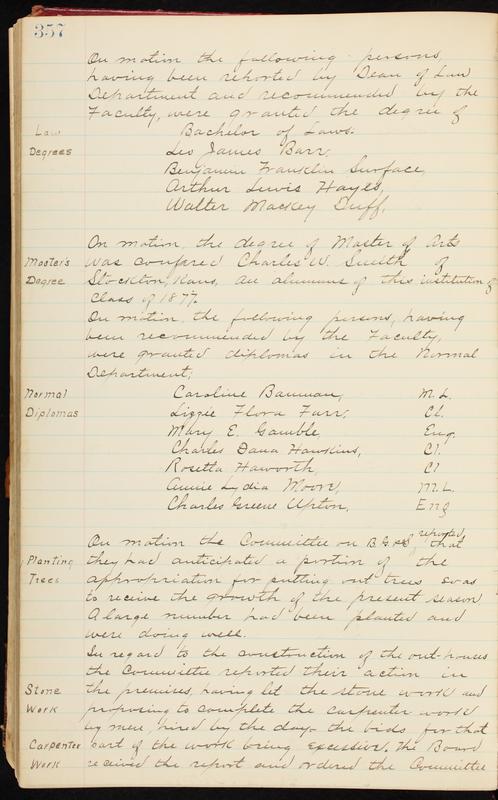 357
On motion the following persons,
having been reported by Dean of Law
Department and recommended by the
Faculty, were granted the degree of
Law Bachelor of Laws.
Degrees Leo James Barr,
Benjamin Franklin Surface,
Arthur Lewis Hayes,
Walter Mackey Duff,
On motion, the degree of Master of Arts
Master's was confered Charles W. Smith of
Degree Stockton, Kans, an alumnus of this institution of
Class of 1877.
On motion, the following persons, having
been recommended by the Faculty,
were granted diplomas in the Normal
Department;
Normal Caroline Bauman, M.L.
Diplomas Lizzie Flora Farr, Cl.
Mary E. Gamble, Eng.
Charles Dana Hawkins, Cl.
Rosetta Haworth, Cl
Annie Lydia Moore, M.L.
Charles Greene Upton, Eng
On motion the Committee on B. G. reported, that
Planting they had anticipated a portion of the
Trees appropriation for putting out trees so as
to receive the growth of the present season
A large number had been planted and
were doing well.
In regard to the construction of the out-houses
the Committee reported their action in
Stone the premises, having let the stone work and
Work proposing to complete the carpenter work
by men, hired by the day, the bids for that
Carpenter part of the work being excessive, the Board
Work received the report and ordered the Committee